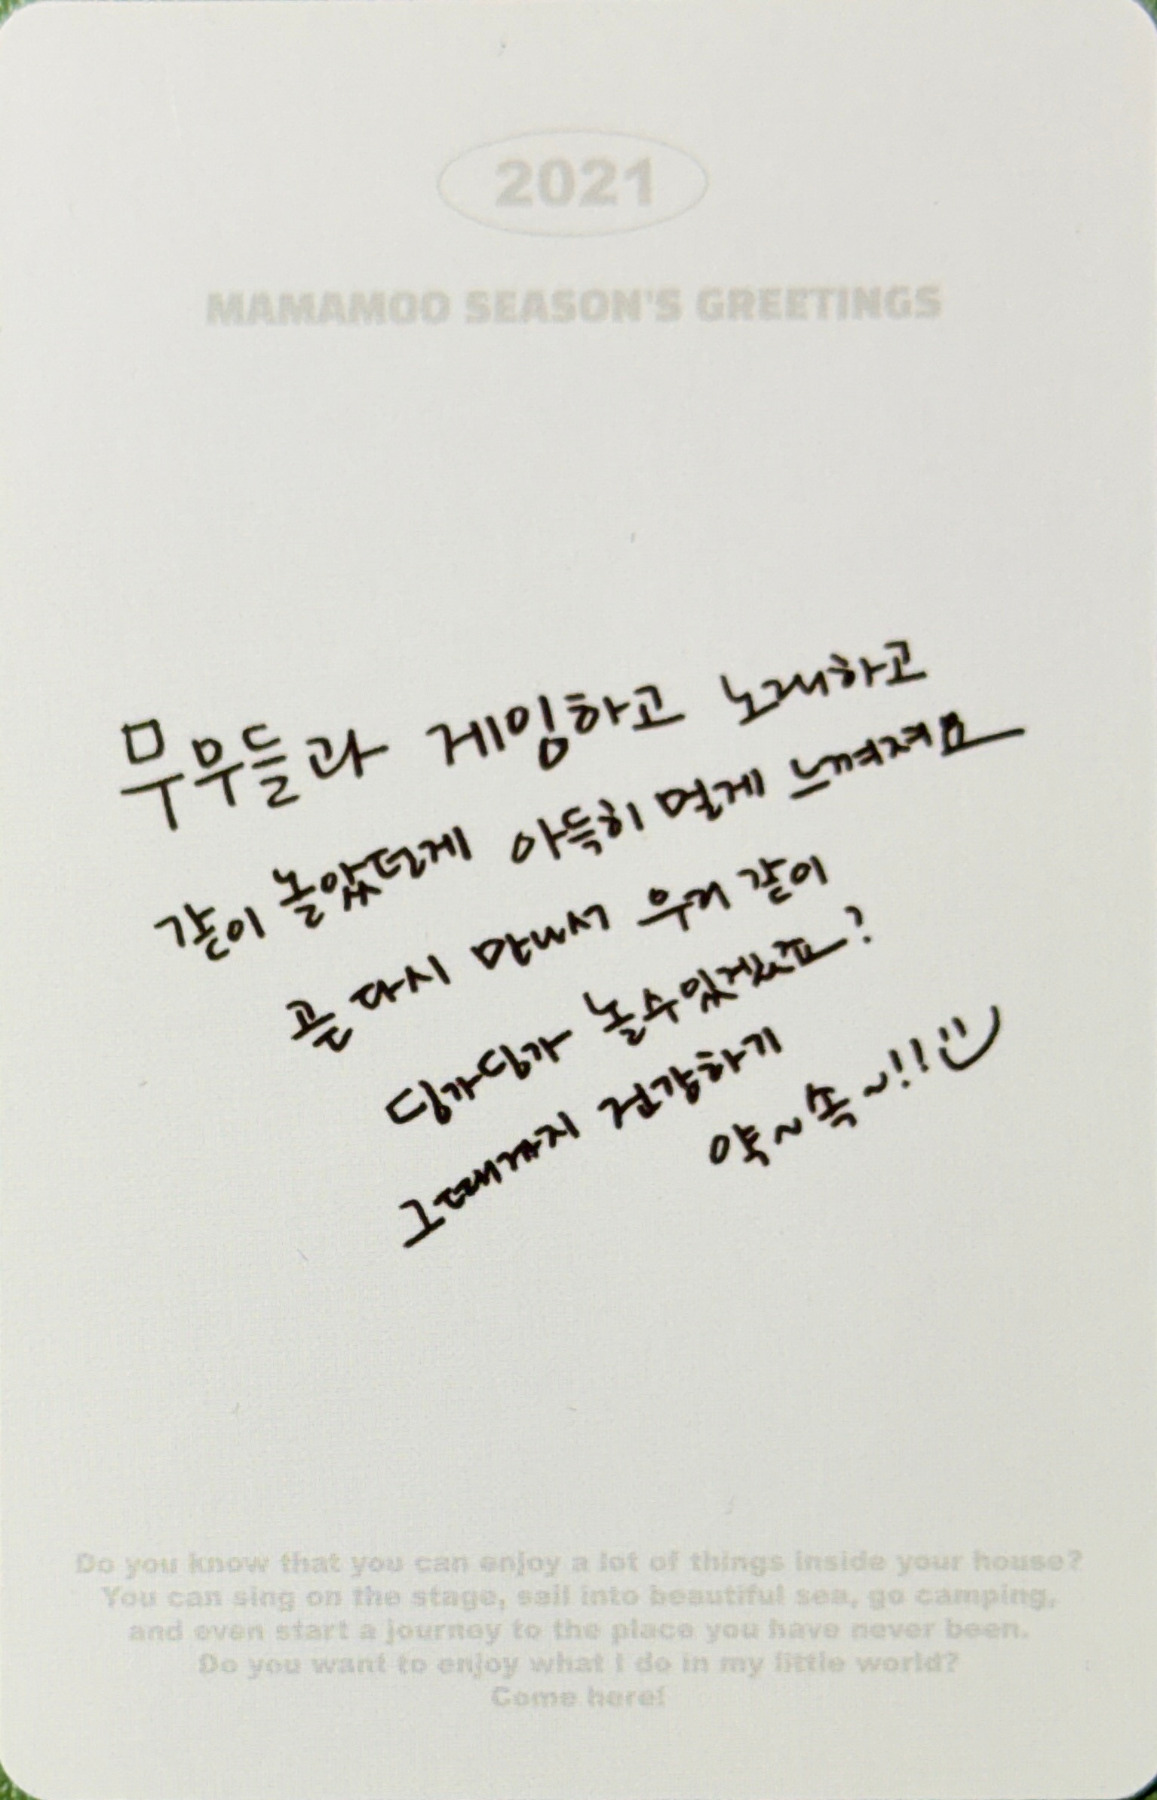 2021
MAMAMOO SEASON'S GREETINGS
무무들과 게임하고 노래하고
같이 놀았던게 아득히 멀게 느껴져요
곧 다시 만나서 우리 같이
딩가딩가 놀수있겠죠?
그때까지 건강하기
약~속~!!
Do you know that you can enjoy a lot of things inside your house?
You can sing on the stage, sail into beautiful sea, go camping,
and even start a journey to the place you have never been.
Do you want to enjoy what I do in my little world?
Come here!